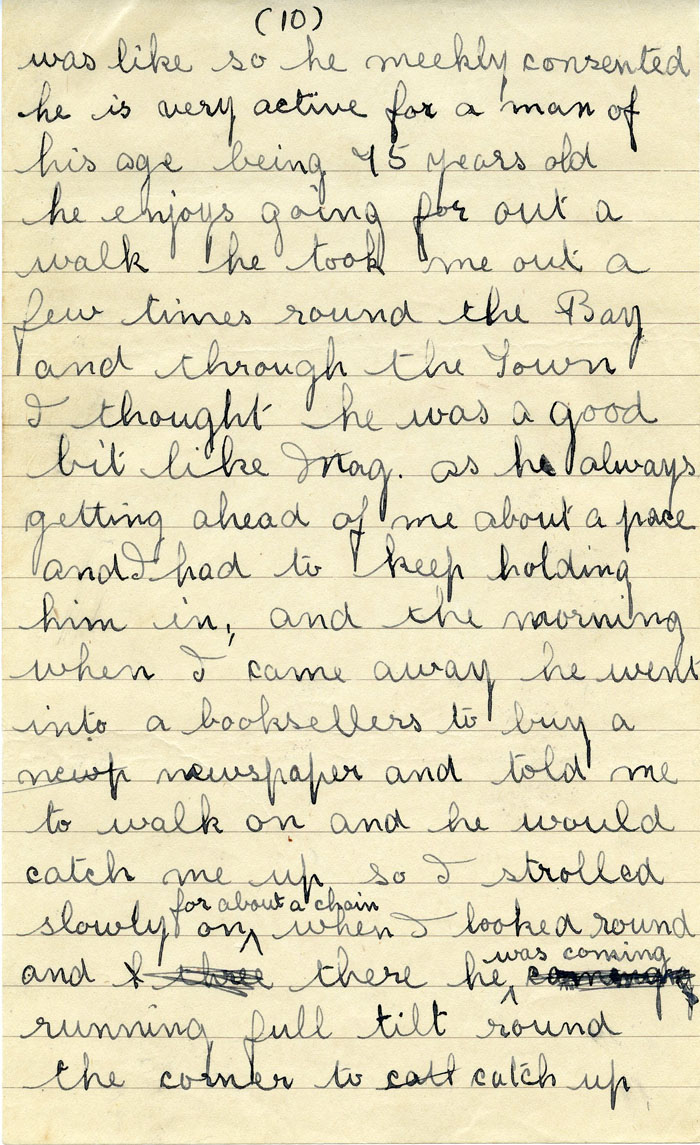 (10)
was like so he meekly consented
he is very active for a man of
his age being 75 years old
he enjoys going for out a
walk he took me out a
few times round the Bay
and through the Town
I thought he was a good
bit like Mag. as he always
getting ahead of me about a pace
and I had to keep holding
him in, and the morning
when I came away he went
into a booksellers to buy a
newp newspaper and told me
to walk on and he would
catch me up so I strolled
for about a chain
slowly on when I looked round
was coming
and & three there he comenging
running full tilt round
the corner to catt catch up